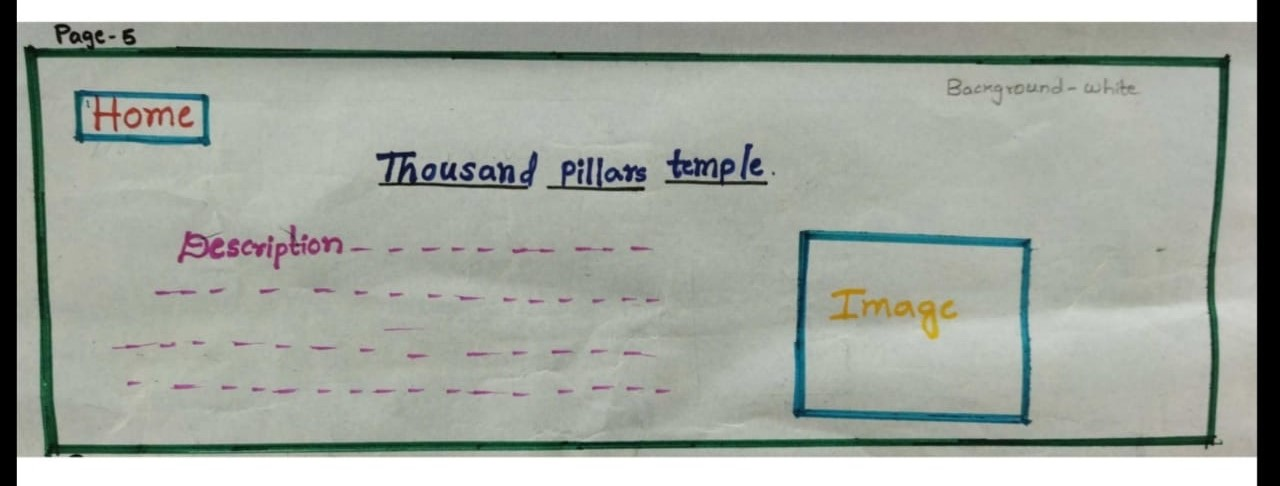 Page-5
Background-white
Home
Thousand Pillars temple.
Description
Image